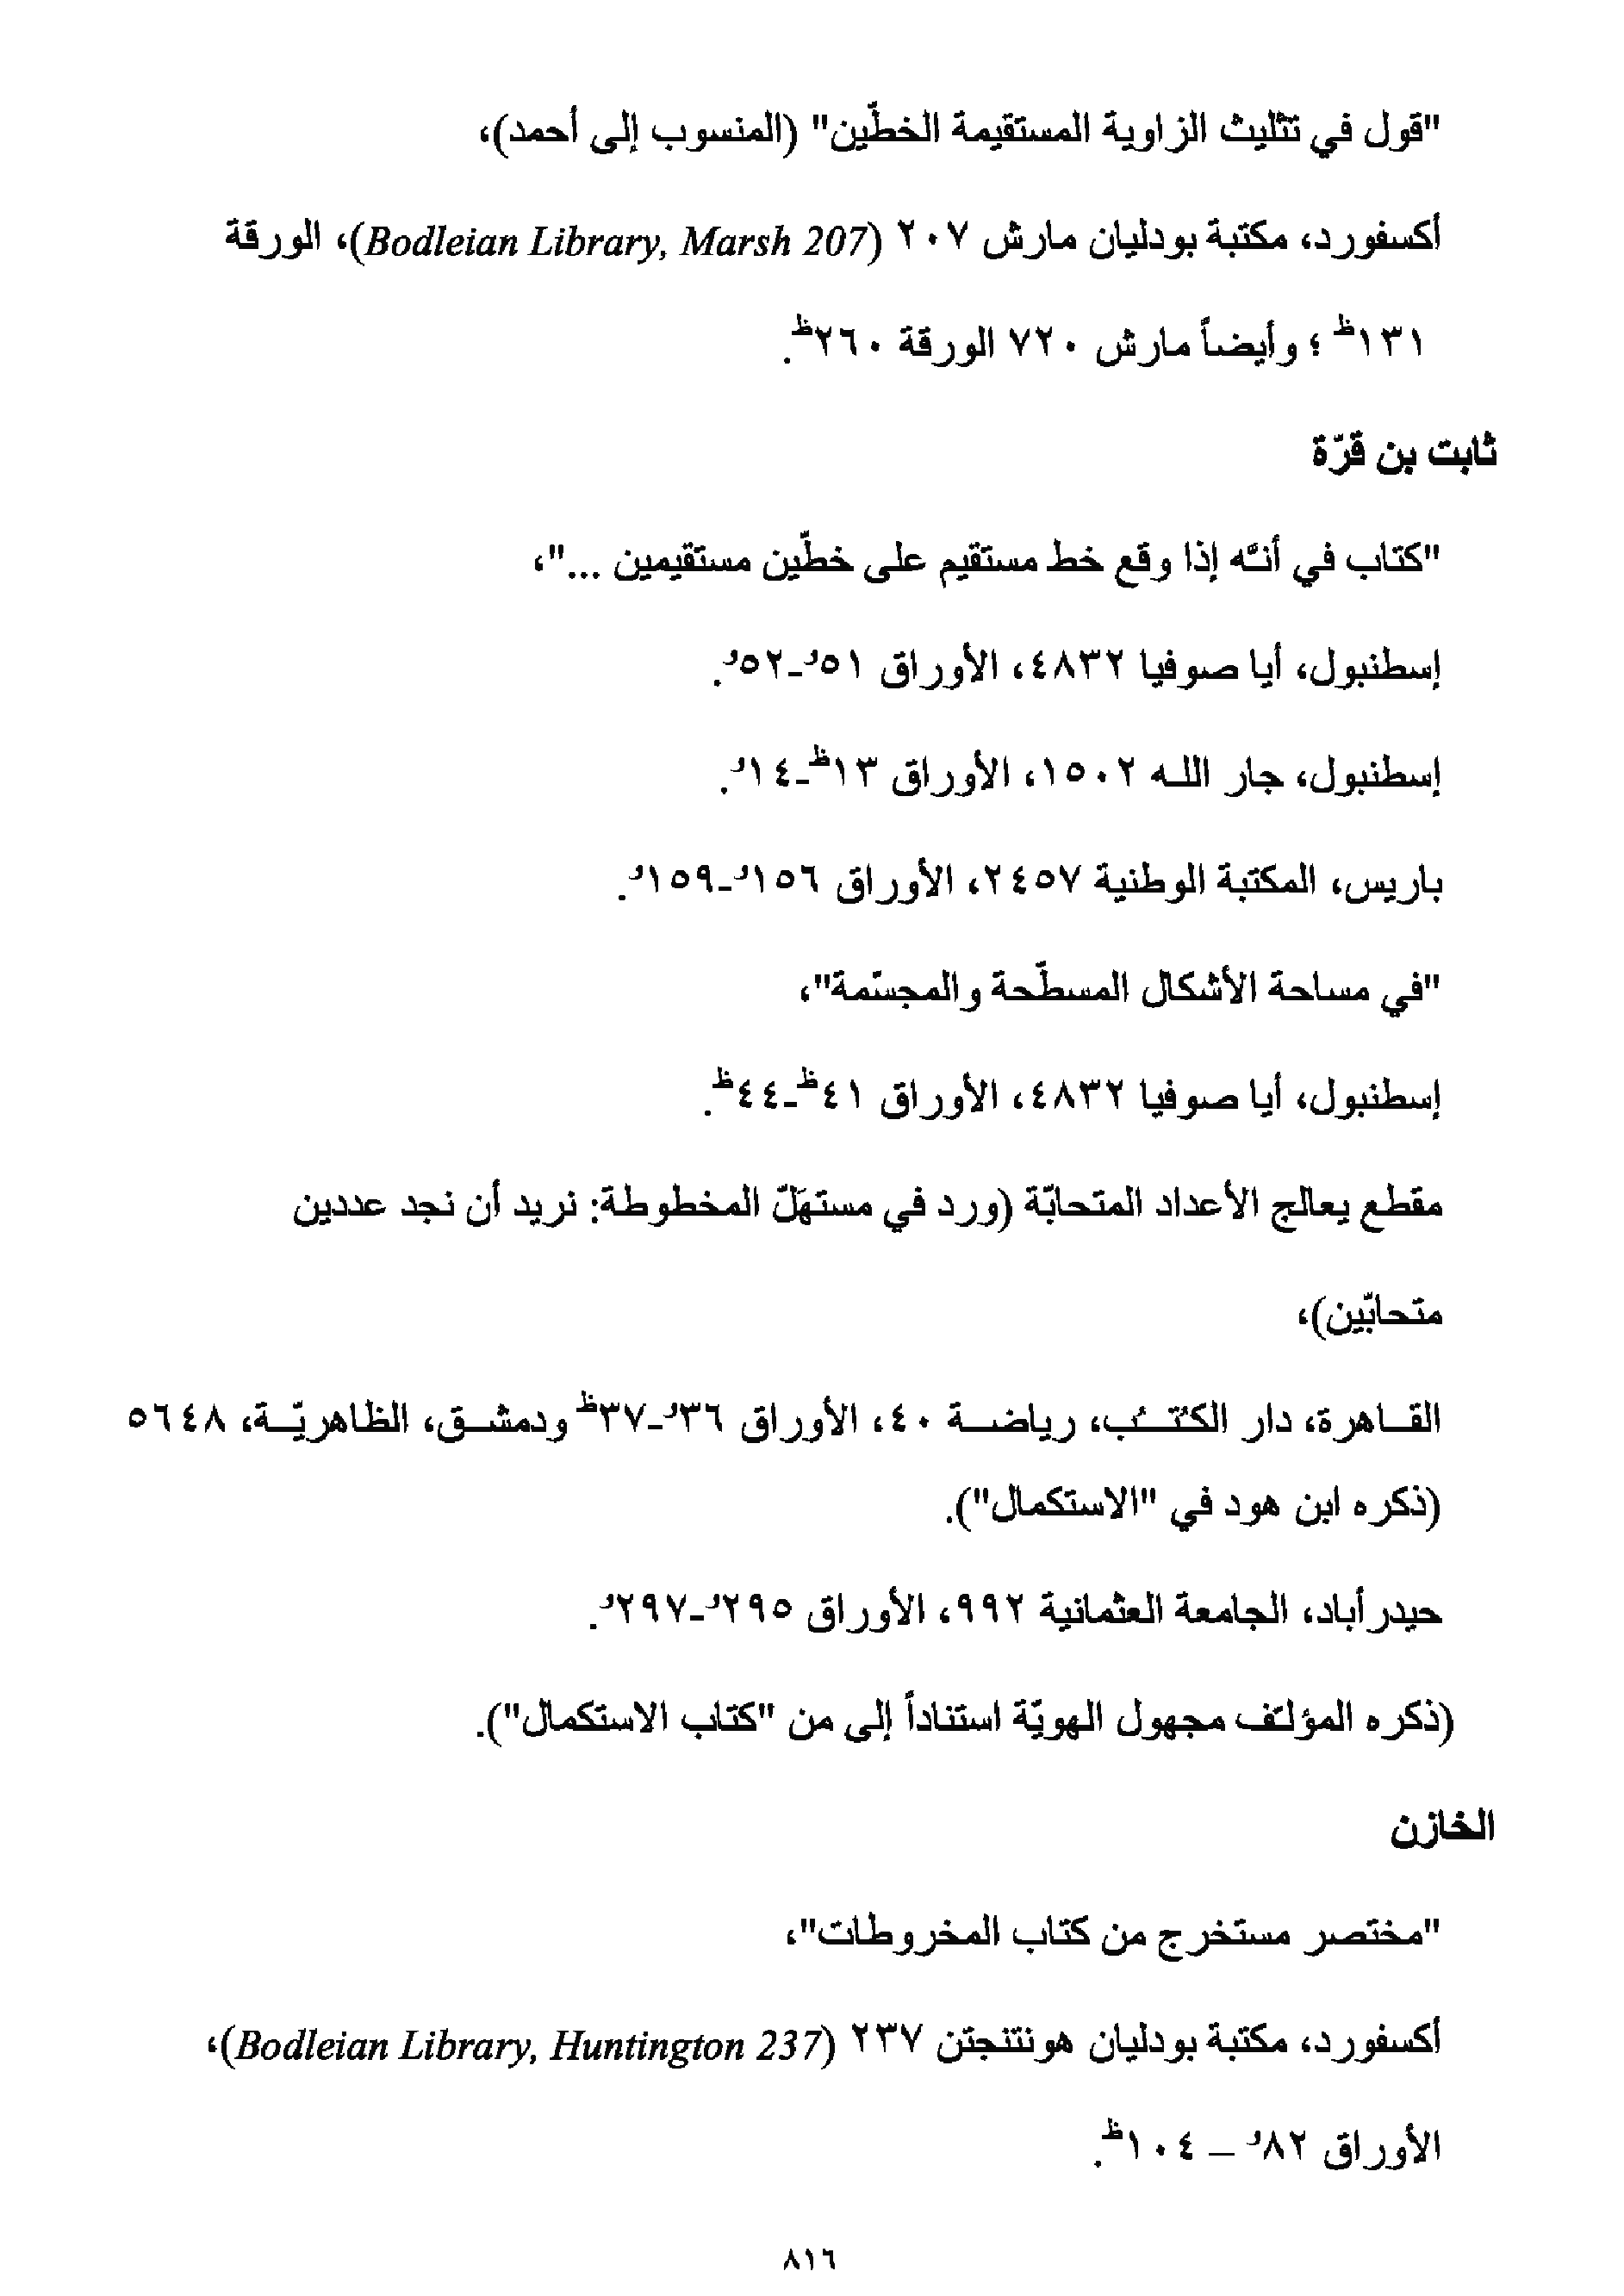 "قول في تثليث الزاوية المستقيمة الخطّين" (المنسوب إلى أحمد)،
أكسفورد، مكتبة بودليان مارش ٢٠٧ (Bodleian Library, Marsh 207)، الورقة
١٣١ظ ؛ وأيضاً مارش ٧٢٠ الورقة ٢٦٠ظ.
ثابت بن قرّة
"كتاب في أنّه إذا وقع خط مستقيم على خطّين مستقيمين ..."،
إسطنبول، أيا صوفيا ٤٨٣٢، الأوراق ٥١و-٥٢و.
إسطنبول، جار اللـه ١٥٠٢، الأوراق ١٣ظ-١٤و.
باريس، المكتبة الوطنية ٢٤٥٧، الأوراق ١٥٦و-١٥٩و.
"في مساحة الأشكال المسطّحة والمجسّمة"،
إسطنبول، أيا صوفيا ٤٨٣٢، الأوراق ٤١ظ-٤٤ظ.
مقطع يعالج الأعداد المتحابّة (ورد في مستهَلّ المخطوطة: نريد أن نجد عددين
متحابّين)،
القـاهرة، دار الكُتـُب، رياضـة ٤٠، الأوراق ٣٦و-٣٧ظ ودمشـق، الظاهريّـة، ٥٦٤٨
(ذكره ابن هود في "الاستكمال").
حيدرأباد، الجامعة العثمانية ٩٩٢، الأوراق ٢٩٥و-٢٩٧و.
(ذكره المؤلّف مجهول الهويّة استناداً إلى من "كتاب الاستكمال").
الخازن
"مختصر مستخرج من كتاب المخروطات"،
أكسفورد، مكتبة بودليان هونتنجتن ٢٣٧ (Bodleian Library, Huntington 237)،
الأوراق ٨٢و – ١٠٤ظ.
٨١٦